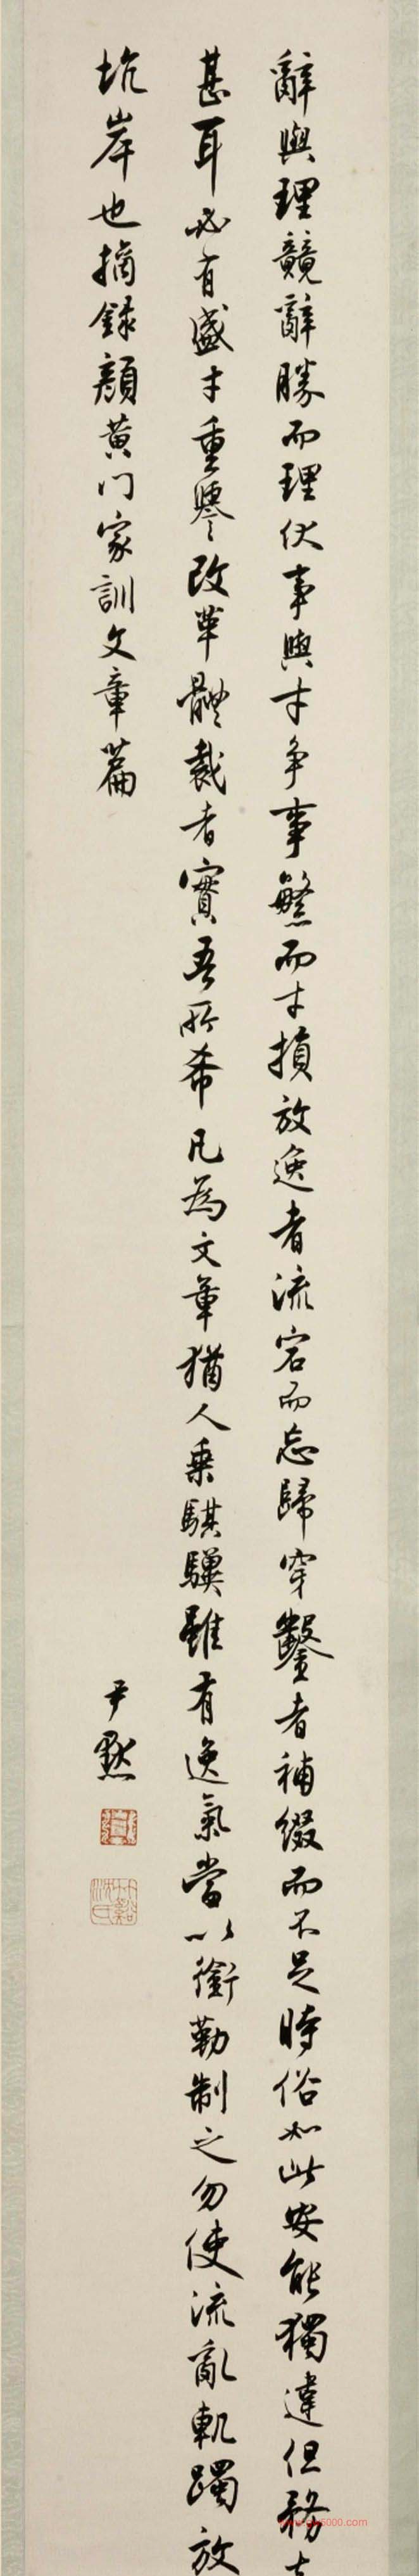 辭與理競辭勝而理伏事與才争事繁而才損放逸者流宕而忘歸穿鑿者補綴而不足時俗如此安能獨違但務去
甚耳必有盛才重譽改革體裁者實吾所希凡為文章猶人乗騏驥雖有逸氣當以銜勒制之勿使流亂軌躅放
坑岸也摘録顔黄門家訓文章篇
尹默
竹谿沈氏